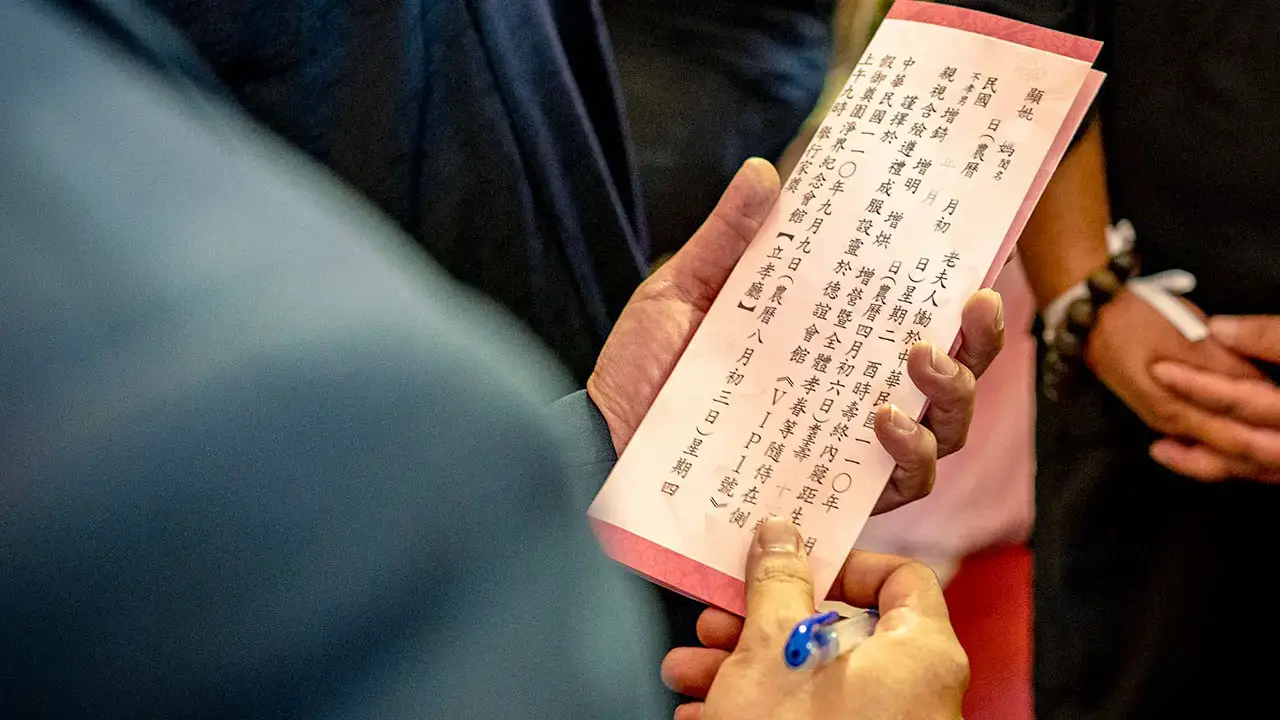 顯妣 媽閨名 老夫人慟於中華民國一一〇年
月 日(農曆四月初六日)星期二 酉時壽終內寢距生
民國 月 日(農曆 月初 日) 壽 十
不孝男 增錡 增明 增烘 增營暨全體孝眷等隨侍在側
親視含殮遵禮成服設靈於德誼會館《VIP1號》
謹擇於
中華民國一一〇年九月九日(農曆八月初三日)星期四
假御奠園淨界紀念會館【立孝廳】
上午九時 舉行家奠